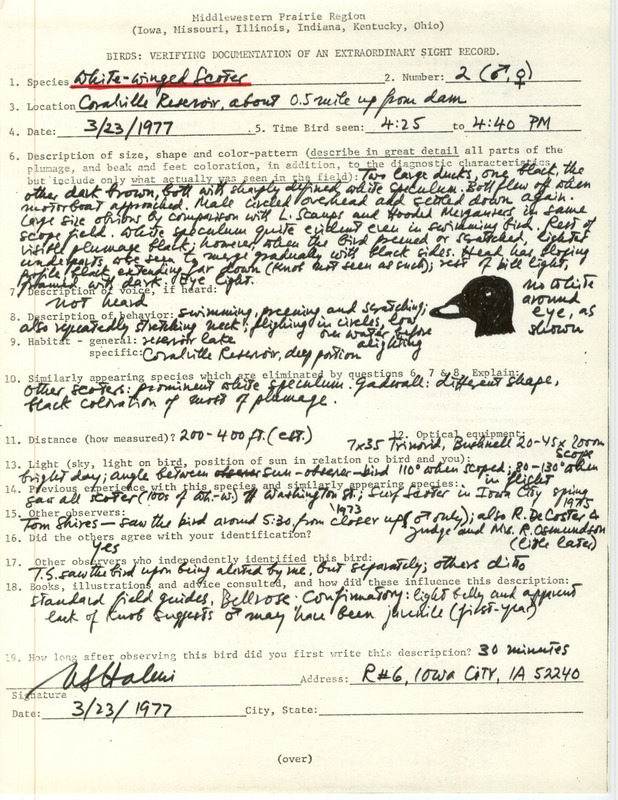 Middlewestern Prairie Region
(Iowa, Missouri, Illinois, Indiana, Kentucky, Ohio)
BIRDS: VERIFYING DOCUMENTATION OF AN EXTRAORDINARY SIGHT RECORD.
1. Species White-winged Scoter 2. Number: 2 (♂,♀)
3. Location Coralville Reservoir, about 0.5 mile up from dam
4. Date: 3/23/1977 5. Time Bird seen: 4:25 to 4:40 PM
6. Description of size, shape and color-pattern (describe in great detail all parts of the
plumage, and beak and feet coloration, in addition, to the diagnostic characteristics
but include only what actually was seen in the field): Two large ducks, one black, the
other dark brown, both with sharply defined white speculum. Both flew off when
motorboat approached. Male circled overhead and settled down again.
Large size obvious by comparison with L. Scaups and Hooded Mergansers in same
scope field. White speculum quite evident even in swimming bird. Rest of
visible plumage black; however, when the bird preened or scratched, lighter
underparts were seen to merge gradually with black sides. Head has sloping
profile black extending far down (knob not seen as such); rest of bill light,
framed with dark. Eye light.
7. Description of voice, if heard:
not heard
no white
around
eye, as
shown
8. Description of behavior: swimming, preening and scratching;
also repeatedly stretching neck; flighing in circles, low
over water before
alighting
9. Habitat - general: reservoir lake
specific: Coralville Reservoir, deep portion
10. Similarly appearing species which are eliminated by questions 6, 7 & 8. Explain:
Other scoters: prominent white speculum. Gadwall: different shape,
black coloration of most of plumage.
11. Distance (how measured)? 200-400 ft. (est.) 12. Optical equipment:
7x35 Trinovid, Bushnell 20-45x zoom
scope
13. Light (sky, light on bird, position of sun in relation to bird and you):
bright day; angle between sun-observer-bird 110° when scoped; 80-130° when
in flight
14. Previous experience with this species and similarly appearing species:
saw all scoters (100s of Wh.-w.) in Washington St.; Surf Scoter in Iowa City spring
1975
15. Other observers: 1973
Tom Shires - saw the bird around 5:30, from closer up (♂ only); also R. DeCosta, &
Judge and Mrs. R. Osmundson
(little later)
16. Did the others agree with your identification?
Yes
17. Other observers who independently identified this bird:
T.S. saw the bird upon being alerted by me, but separately; others ditto
18. Books, illustrations and advice consulted, and how did these influence this description:
standard field guides, Bellrose. Confirmatory: light belly and apparent
lack of knob suggests ♂ may have been juvenile (first-year)
19. How long after observing this bird did you first write this description? 30 minutes
Address: R#6, Iowa City, IA 52240
Signature
Date: 3/23/1977 City, State:
(over)